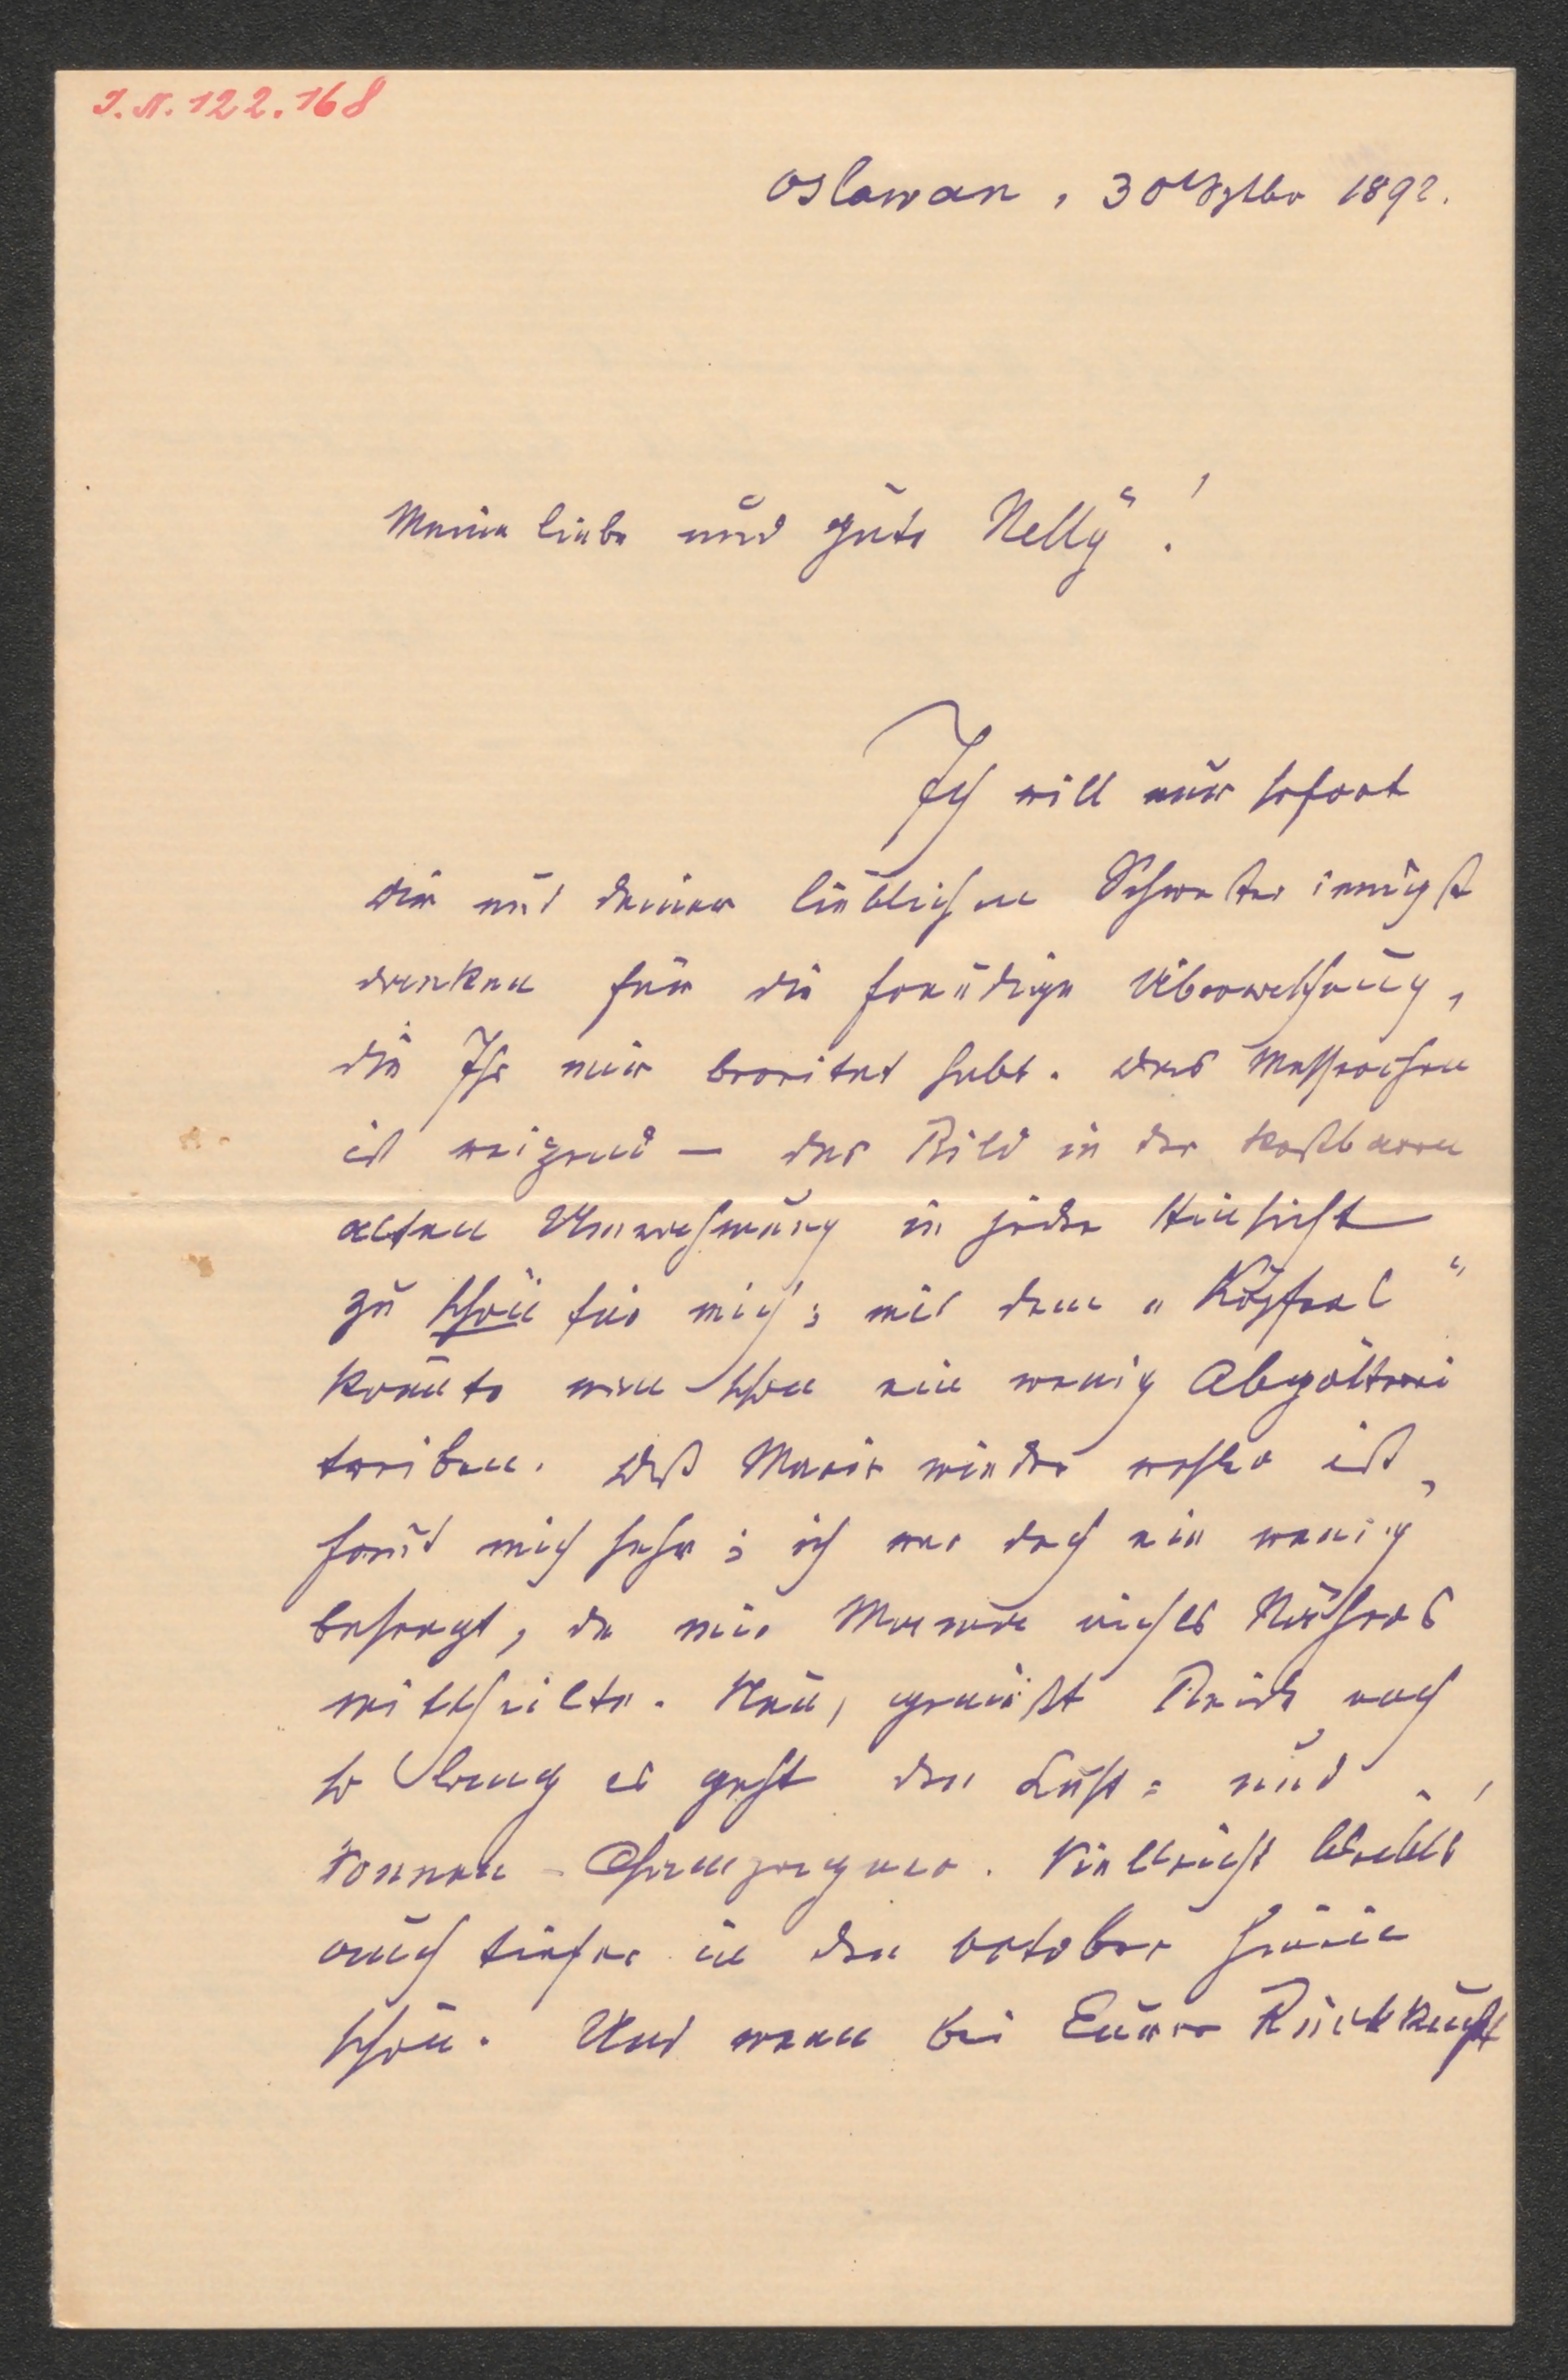 J.N. 122.168
Oslawan, 30 Sptbr 1892.
Meine liebe und gute Nelly!
Ich will nur sofort
Dir und Deiner lieblichen Schwester innigst
danken für die freudige Überraschung,
die Ihr mir bereitet habt. Das Messerchen
ist reizend — das Bild in der kostbaren
alten Umrahmung in jeder Hinsicht
zu schön für mich; mit dem „Köpferl"
könnte man schon ein wenig Abgötterei
treiben. Daß Marie wieder wohler ist,
freut mich sehr; ich war doch ein wenig
besorgt, da mir Mamma nichts Näheres
mittheilte. Nun, genießt Beide noch
so lang es geht den Luft- und
Sonnen-Champagner. Vielleicht bleibts
auch tiefer in den October hinein
schön. Und wenn bei Eurer Rückkunft